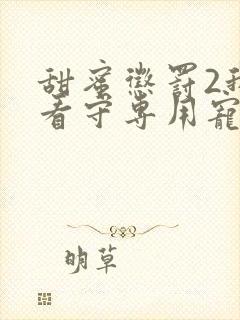 甜蜜懲罰2我
看守專用寵
明草